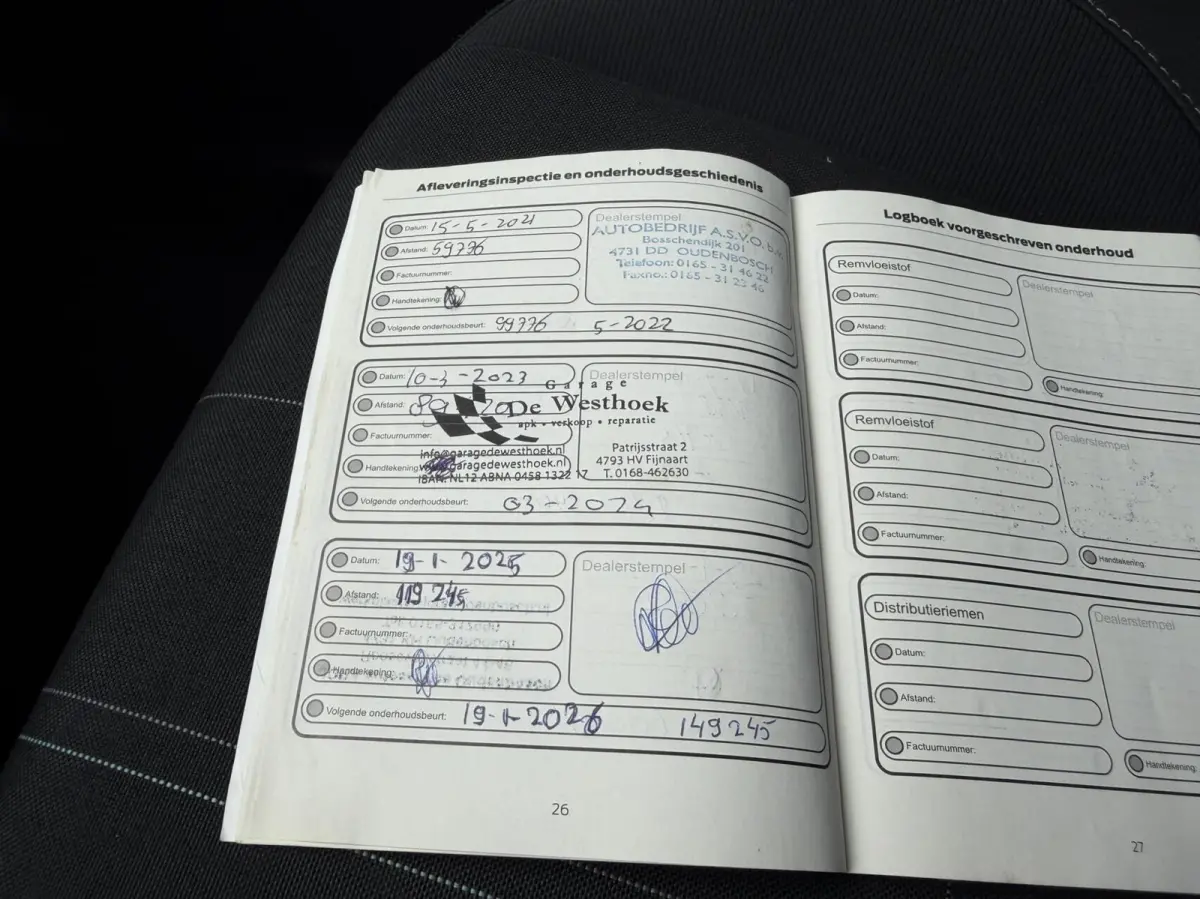 Afleveringsinspectie en onderhoudsgeschiedenis
Datum: 15-5-2021
Afstand: 59776
Factuurnummer:
Handtekening:
Volgende onderhoudsbeurt: 99776 5-2022
Dealerstempel
AUTOBEDRIJF A.S.V.O. b.v.
Bosschendijk 201
4731 DD OUDENBOSCH
Telefoon: 0165 - 31 46 22
Faxno.: 0165 - 31 23 46
Datum: 10-3-2023
Afstand:
Factuurnummer:
Handtekening
Volgende onderhoudsbeurt: 03-2024
Dealerstempel
Garage
De Westhoek
apk • verkoop • reparatie
info@garagedewesthoek.nl
garagedewesthoek.nl
IBAN: NL12 ABNA 0458 1322 17
Patrijsstraat 2
4793 HV Fijnaart
T. 0168-462630
Datum: 19-1-2025
Afstand: 119245
Factuurnummer:
Handtekening:
Volgende onderhoudsbeurt: 19-1-2026 149245
Dealerstempel
26
Logboek voorgeschreven onderhoud
Remvloeistof
Datum:
Afstand:
Factuurnummer:
Dealerstempel
Handtekening:
Remvloeistof
Datum:
Afstand:
Factuurnummer:
Dealerstempel
Handtekening:
Distributieriemen
Datum:
Afstand:
Factuurnummer:
Dealerstempel
Handtekening:
27